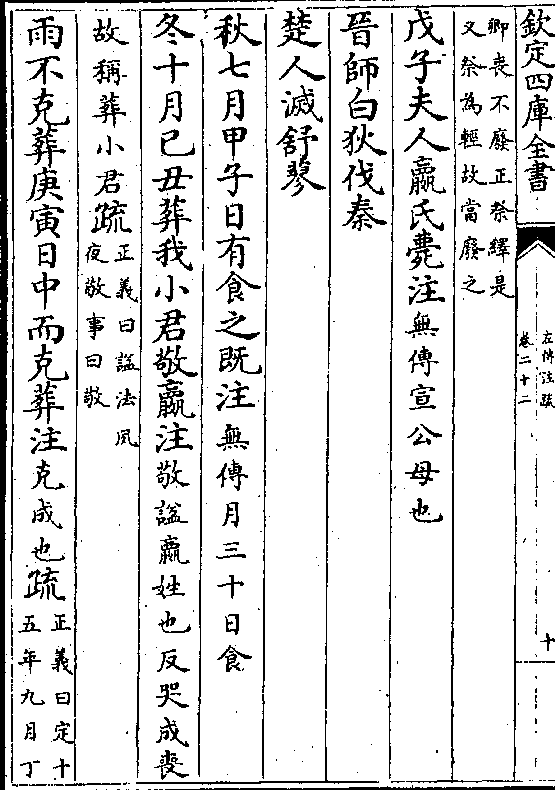 欽定四庫全書
左傳注疏
卷二十二
十
卿喪不廢正祭繹是
又祭為輕故當廢之
戊子夫人嬴氏薨注無傳宣公母也
晉師白狄伐秦
楚人滅舒蓼
秋七月甲子日有食之既注無傳月三十日食
冬十月己丑葬我小君敬嬴注敬諡嬴姓也反哭成喪
故稱葬小君疏正義曰諡法夙
夜敬事曰敬
雨不克葬庚寅日中而克葬注克成也疏正義曰定十
五年九月丁